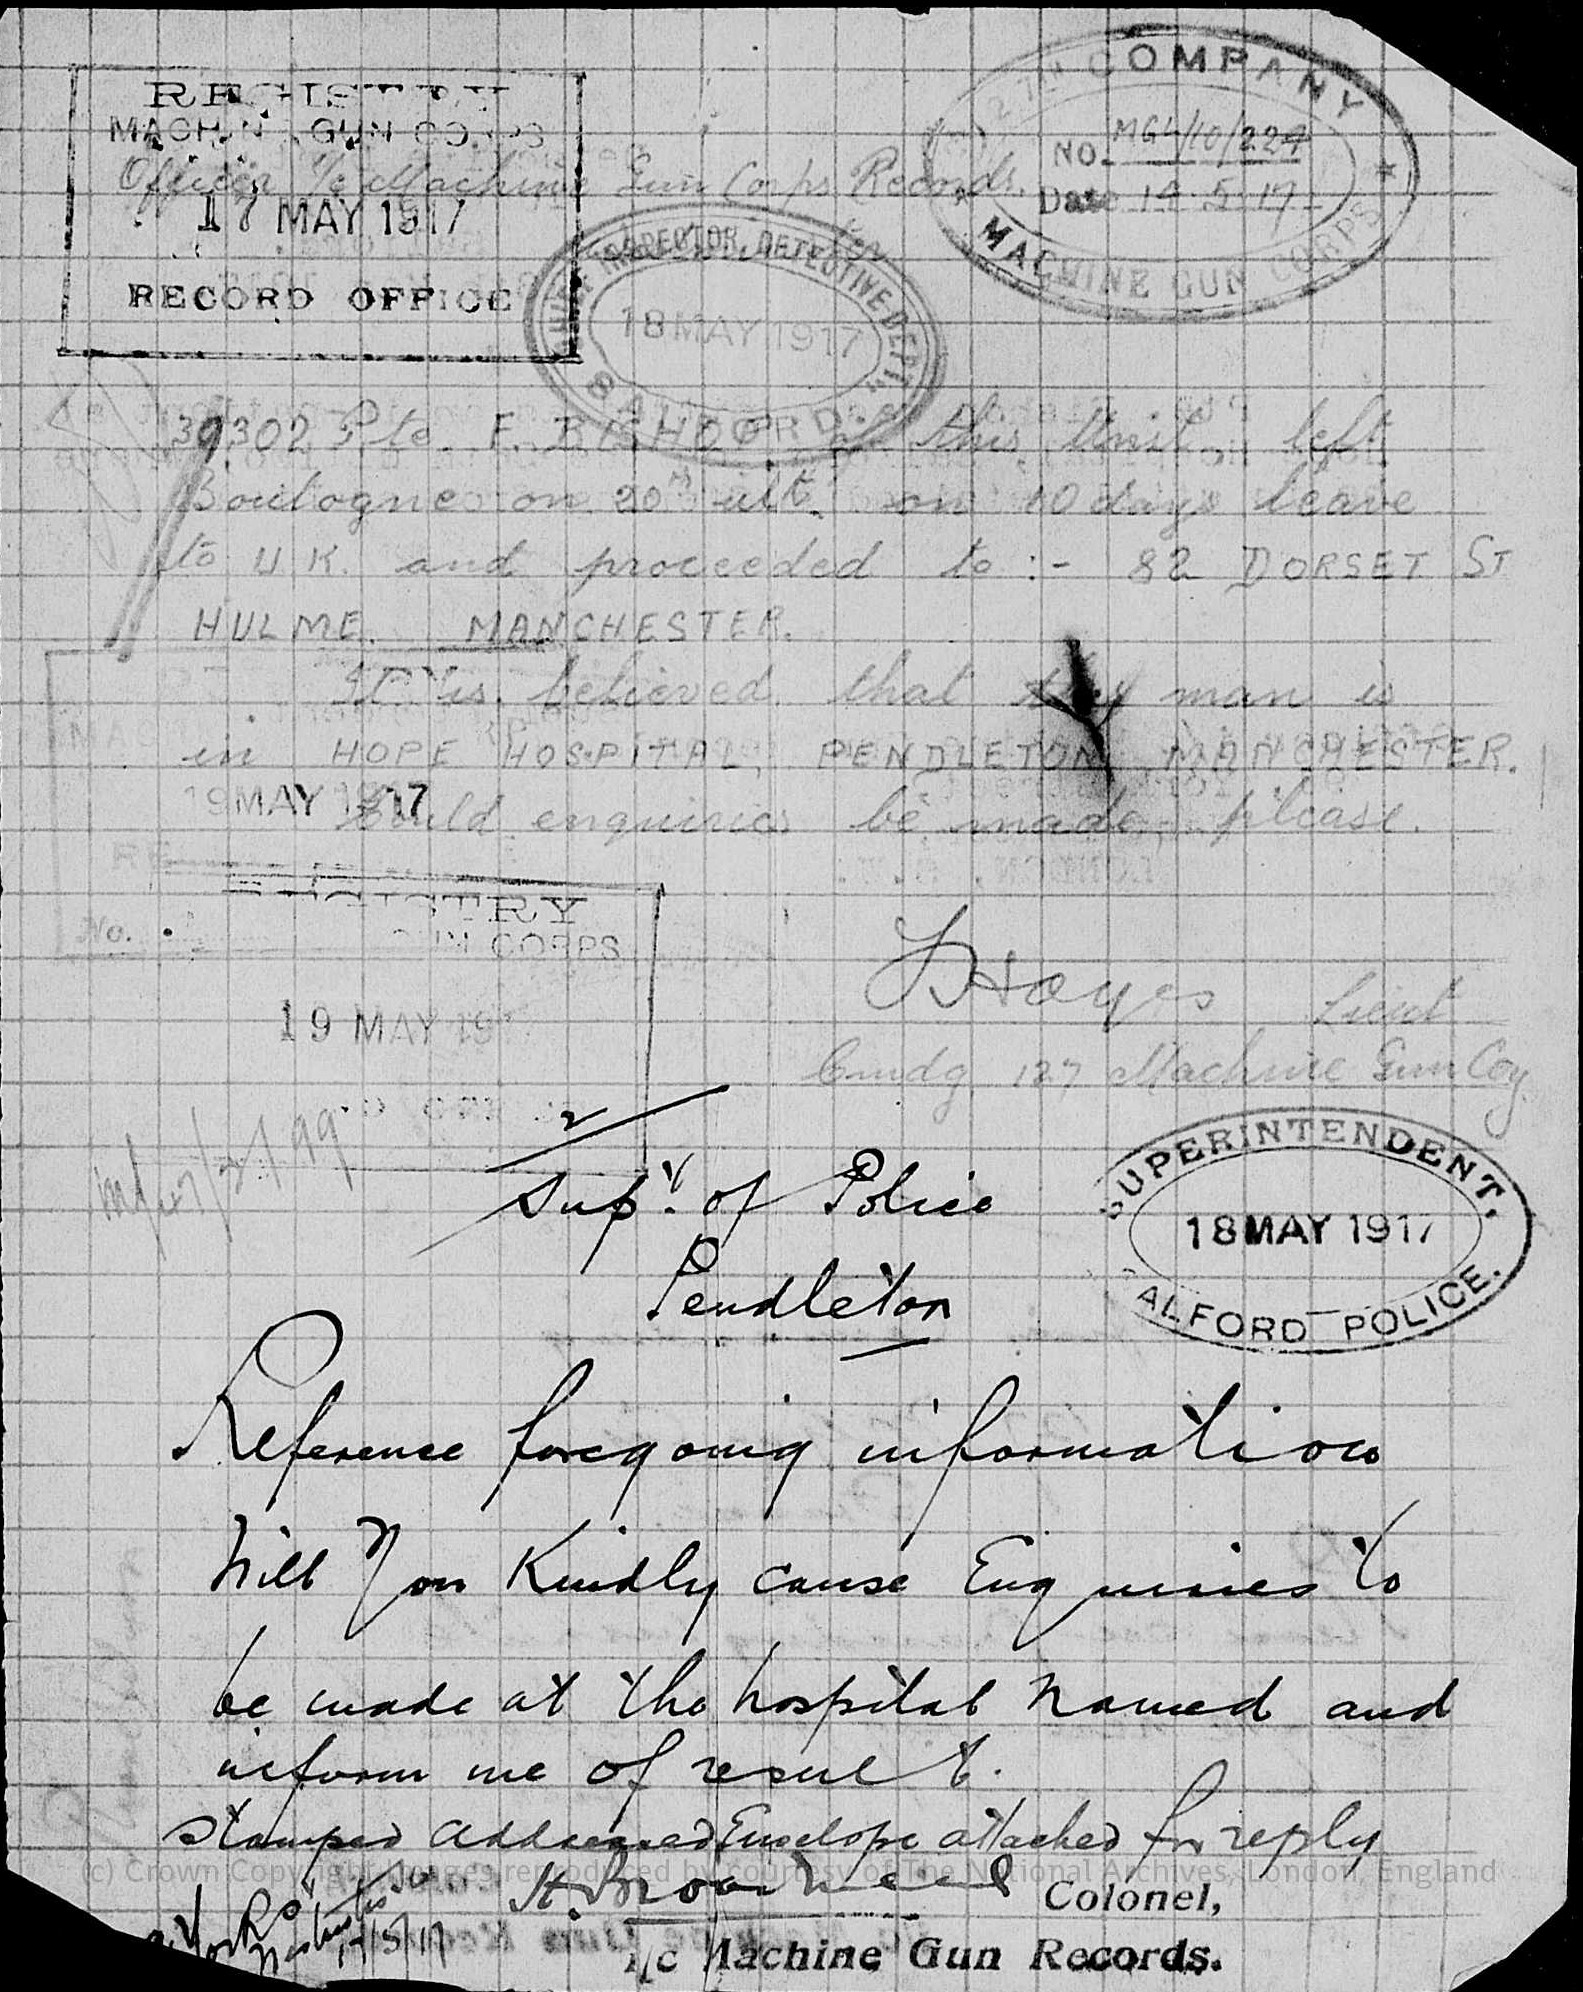 REGISTRY
MACHINE GUN CORPS
17 MAY 1917
RECORD OFFICE
127TH COMPANY
No. MGC/10/224
Date 14.5.17
MACHINE GUN CORPS
Officer i/c Machine Gun Corps Records.
INSPECTOR, DETECTIVE DEPT
18 MAY 1917
SALFORD.
39302 Pte. F. BISHOP of this Unit left
Boulogne on 20th ult. on 10 days leave
to U.K. and proceeded to :- 82 DORSET ST
HULME. MANCHESTER.
It is believed that this man is
in HOPE HOSPITAL, PENDLETON MANCHESTER.
Could enquiries be made, please.
19 MAY 1917
No.
REGISTRY
GUN CORPS
19 MAY 19
Hayes Lieut
Cmdg 127 Machine Gun Coy
2
Supt. of Police
Pendleton
SUPERINTENDENT,
18 MAY 1917
ALFORD POLICE.
Reference foregoing information
Will you Kindly cause Enquiries to
be made at the hospital named and
inform me of result.
Stamped addressed Envelope attached for reply
(c) Crown Copyright Images reproduced by courtesy of The National Archives, London, England
Colonel,
i/c Machine Gun Records.
17/5/17